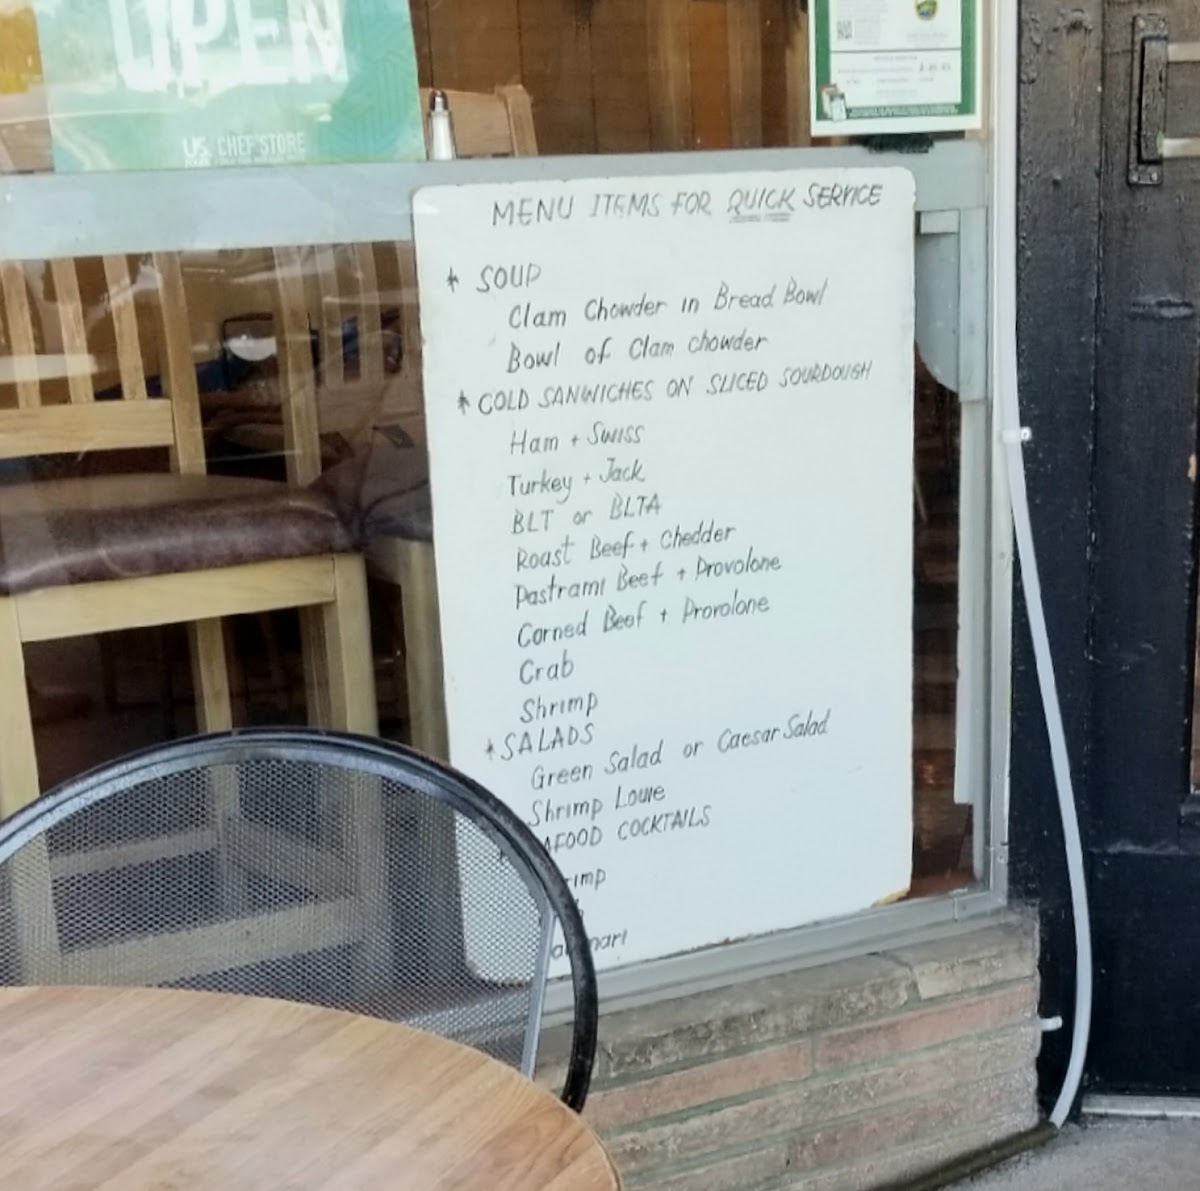 OPEN
US. CHEF'STORE
MENU ITEMS FOR QUICK SERVICE
* SOUP
Clam Chowder in Bread Bowl
Bowl of Clam chowder
* COLD SANWICHES ON SLICED SOURDOUGH
Ham + Swiss
Turkey + Jack
BLT or BLTA
Roast Beef + Chedder
Pastrami Beef + Provolone
Corned Beef + Provolone
Crab
Shrimp
* SALADS
Green Salad or Caesar Salad
Shrimp Louie
AFOOD COCKTAILS
rimp